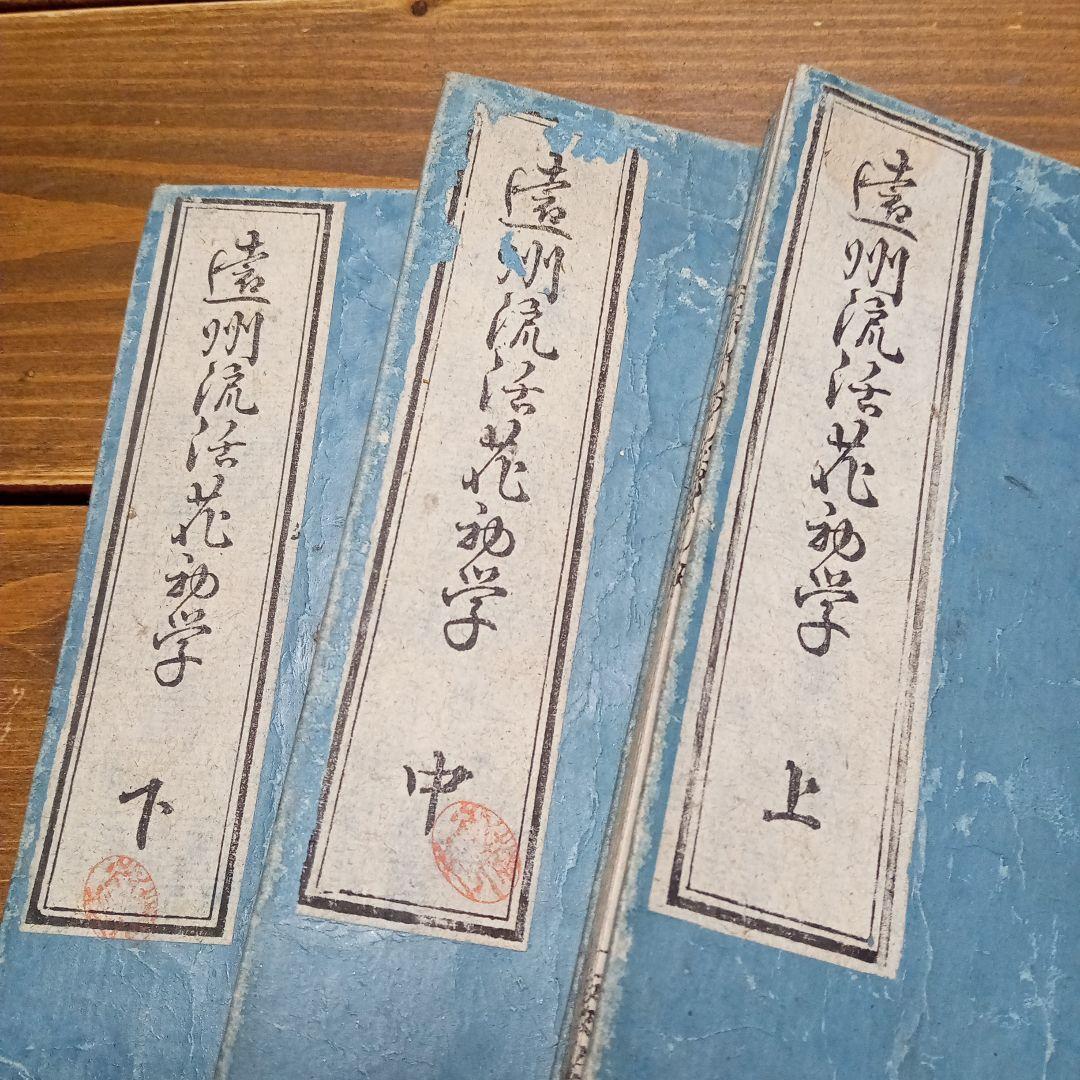 遠州流活花初学
上
遠州流活花初学
中
遠州流活花初学
下